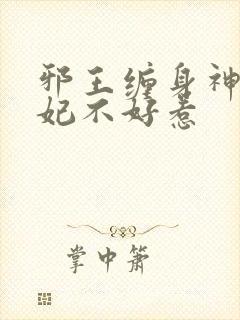 邪王缠身神
妃不好惹
掌中箫